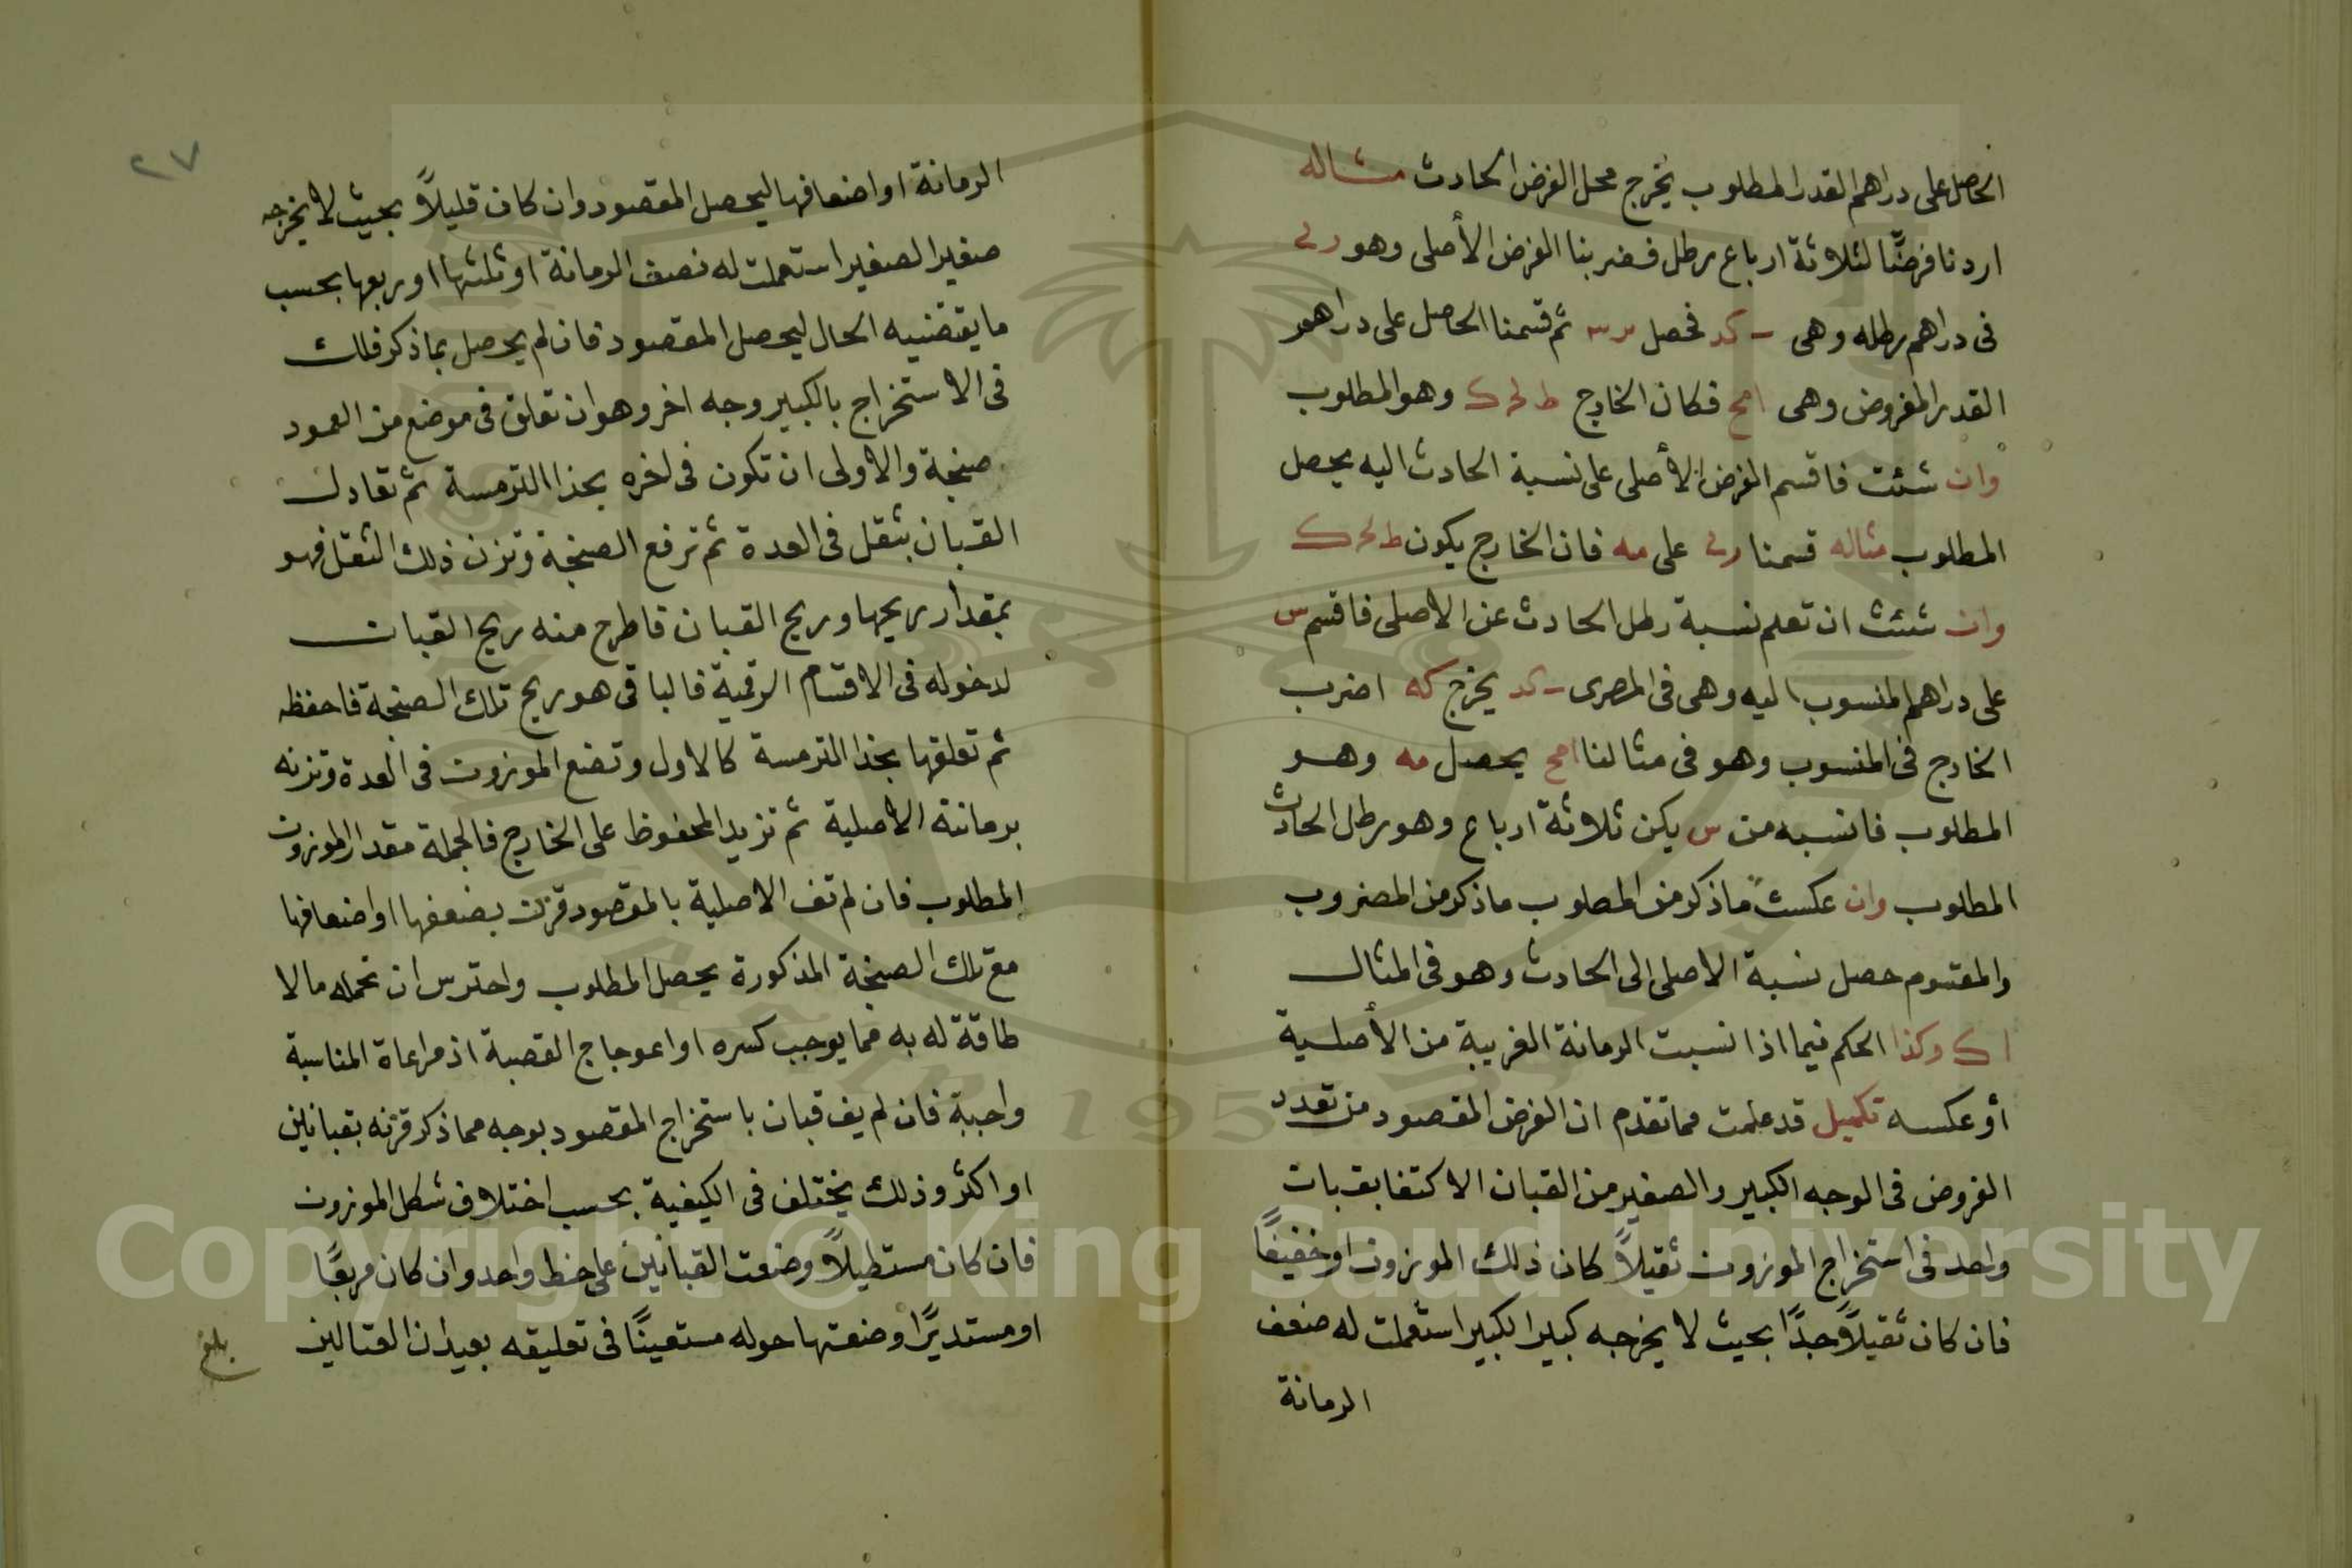 الحاصل على دراهم القدر المطلوب يخرج محل الفرض الحادث مثاله
اردنا فرضًا لثلاثة ارباع رطل فضربنا الفرض الأصلى وهو
فى دراهم رطله وهى كد فحصل ثم قسمنا الحاصل على دراهم
القدر المفروض وهى امح فكان الخارج وهو المطلوب
وان شئت فاقسم الفرض الأصلى على نسبة الحادث اليه يحصل
المطلوب مثاله قسمنا على مه فان الخارج يكون
وان شئت ان تعلم نسبة رطل الحادث عن الاصلى فاقسم س
على دراهم المنسوب اليه وهى فى المصرى كد يخرج كه اضرب
الخارج فى المنسوب وهو فى مثالنا امح يحصل مه وهو
المطلوب فانسبه من س يكن ثلاثة ارباع وهو رطل الحادث
المطلوب وان عكست ماذكر من المطلوب ماذكر من المضروب
والمقسوم حصل نسبة الاصلى الى الحادث وهو فى المثال
اك وكذا الحكم فيما اذا نسبت الرمانة الغريبة من الأصلية
أو عكسه تكميل قد علمت مما تقدم ان الغرض المقصود من تعدد
الفروض فى الوجه الكبير والصغير من القبان الاكتفا بقبان
واحد فى استخراج الموزون ثقيلاً كان ذلك الموزون او خفيفًا
فان كان ثقيلاً جدًا بحيث لا يخرجه كبير الكبير استعملت له ضعف
الرمانة
٢٧
الرمانة او اضعافها ليحصل المقصود وان كان قليلاً بحيث لا يخرجه
صغير الصغير استعملت له نصف الرمانة او ثلثها او ربعها بحسب
ما يقتضيه الحال ليحصل المقصود فان لم يحصل بما ذكر فلك
فى الاستخراج بالكبير وجه اخر وهو ان تعلق فى موضع من العمود
صنجة والاولى ان تكون فى اخره بحذا الترمسة ثم تعادل
القبان بثقل فى العدة ثم ترفع الصنجة وتزن ذلك الثقل فهو
بمقدار ريحها وريح القبان فاطرح منه ريح القبان
لدخوله فى الاقسام الرقمية فالباقى هو ريح تلك الصنجة فاحفظه
ثم تعلقها بحذا الترمسة كالاول وتضع الموزون فى العدة وتزنه
برمانته الاصلية ثم تزيد المحفوظ على الخارج فالجملة مقدار الموزون
المطلوب فان لم تف الاصلية بالمقصود قرنت بضعفها او اضعافها
مع تلك الصنجة المذكورة يحصل المطلوب واحترس ان تحمله مالا
طاقة له به مما يوجب كسره او اعوجاج القصبة اذ مراعاة المناسبة
واجبة فان لم يف قبان باستخراج المقصود بوجه مما ذكر قرنه بقبانين
او اكثر وذلك يختلف فى الكيفية بحسب اختلاف شكل الموزون
فان كان مستطيلاً وضعت القبانين على خط واحد وان كان مربعًا
او مستديرًا وضعتها حوله مستعينًا فى تعليقه بعيدان العتالين
بلغ
Copyright © King Saud University